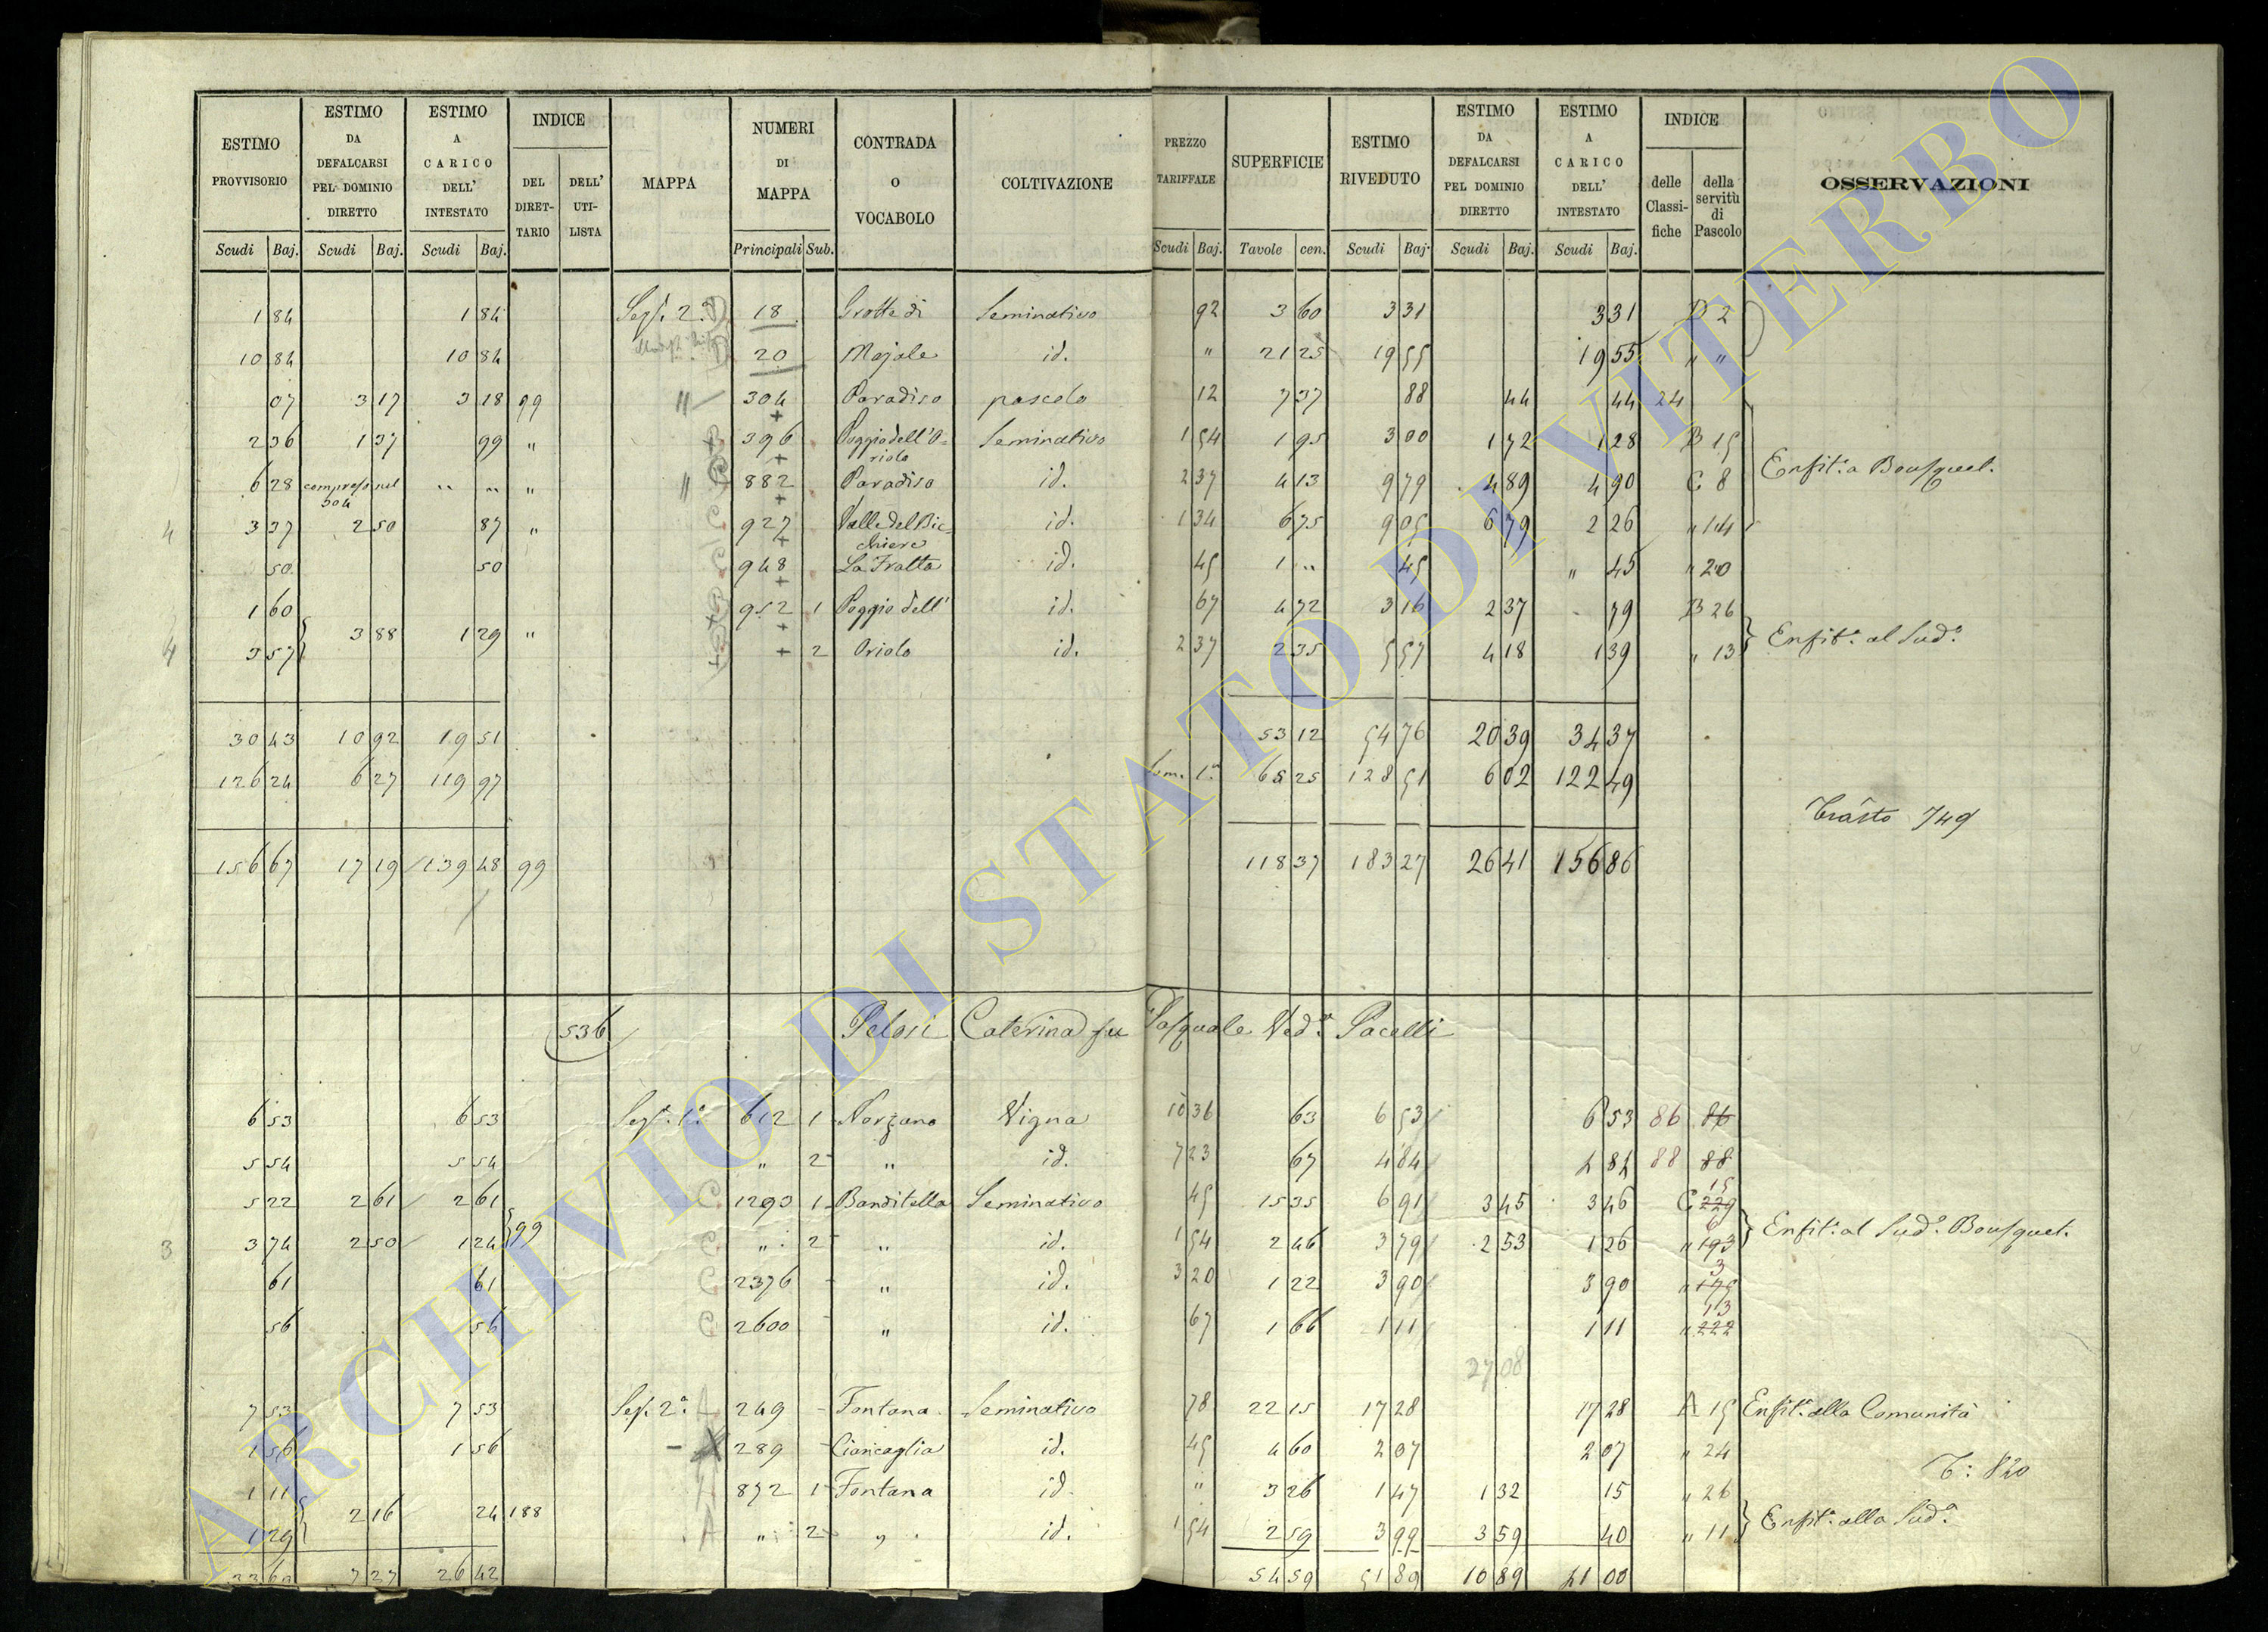 ESTIMO PROVVISORIO Scudi Baj. ESTIMO DA DEFALCARSI PEL DOMINIO DIRETTO Scudi Baj. ESTIMO A CARICO DELL' INTESTATO Scudi Baj. INDICE DEL DIRET- TARIO DELL' UTI- LISTA MAPPA NUMERI DI MAPPA Principali Sub. CONTRADA O VOCABOLO COLTIVAZIONE PREZZO TARIFFALE Scudi Baj. SUPERFICIE Tavole cen. ESTIMO RIVEDUTO Scudi Baj. ESTIMO DA DEFALCARSI PEL DOMINIO DIRETTO Scudi Baj. ESTIMO A CARICO DELL' INTESTATO Scudi Baj. INDICE delle Classi- fiche della servitù di Pascolo OSSERVAZIONI
1 84 1 84 Sez. 2.a 18 Grotte di Seminativo 92 3 60 3 31 3 31 B 2
10 84 10 84 20 Majale id. " 21 25 19 55 19 55 " "
07 3 17 3 18 99 " 304 Paradiso pascolo 12 7 37 88 44 44 24
2 36 1 37 99 " 396 Poggio dell'O= Seminativo 1 54 1 95 3 00 1 72 1 28 B 15
riolo
6 28 compreso nel " " " " 882 Paradiso id. 2 37 4 13 9 79 4 89 4 90 C 8 Enfit.a Bousquet.
304
3 37 2 50 87 " 927 Valle del Bic= id. 1 34 6 75 9 05 6 79 2 26 " 14
chiere
50 50 948 La Fratta id. 45 1 " 45 " 45 " 20
1 60 952 1 Poggio dell' id. 67 4 72 3 16 2 37 79 B 26
3 88 1 29 " Enfit.a al Sud.o
3 57 2 Oriolo id. 2 37 2 35 5 57 4 18 1 39 " 13
30 43 10 92 19 51 53 12 54 76 20 39 34 37
126 24 6 27 119 97 Som. 1.a 65 25 128 51 6 02 122 49
Trasto 749
156 67 17 19 139 48 99 118 37 183 27 26 41 156 86
536 Pelosi Caterina fu Pasquale Ved.a Pacelli
6 53 6 53 Sez. 1.a 612 1 Norzano Vigna 10 36 63 6 53 6 53 86 86
5 54 5 54 " 2 " id. 7 23 67 4 84 4 84 88 88
5 22 2 61 2 61 1293 1 Banditella Seminativo 45 15 35 6 91 3 45 3 46 C 15 229
99 Enfit.a al Sud.o Bousquet.
3 3 74 2 50 1 24 " 2 " id. 1 54 2 46 3 79 2 53 1 26 " 6 193
61 61 2376 " id. 3 20 1 22 3 90 3 90 " 3 175
56 56 2600 " id. 67 1 66 1 11 1 11 " 13 222
27 08
7 53 7 53 Sez. 2.a 249 Fontana Seminativo 78 22 15 17 28 17 28 A 15 Enfit.a alla Comunità
1 56 1 56 289 Ciancaglia id. 45 4 60 2 07 2 07 " 24
T: 820
1 11 872 1 Fontana id. " 3 26 1 47 1 32 15 " 26
2 16 24 188 Enfit.a alla Sud.a
1 29 " 2 " id. 1 54 2 59 3 99 3 59 40 " 11
7 27 26 42 54 59 51 89 10 89 41 00
ARCHIVIO DI STATO DI VITERBO